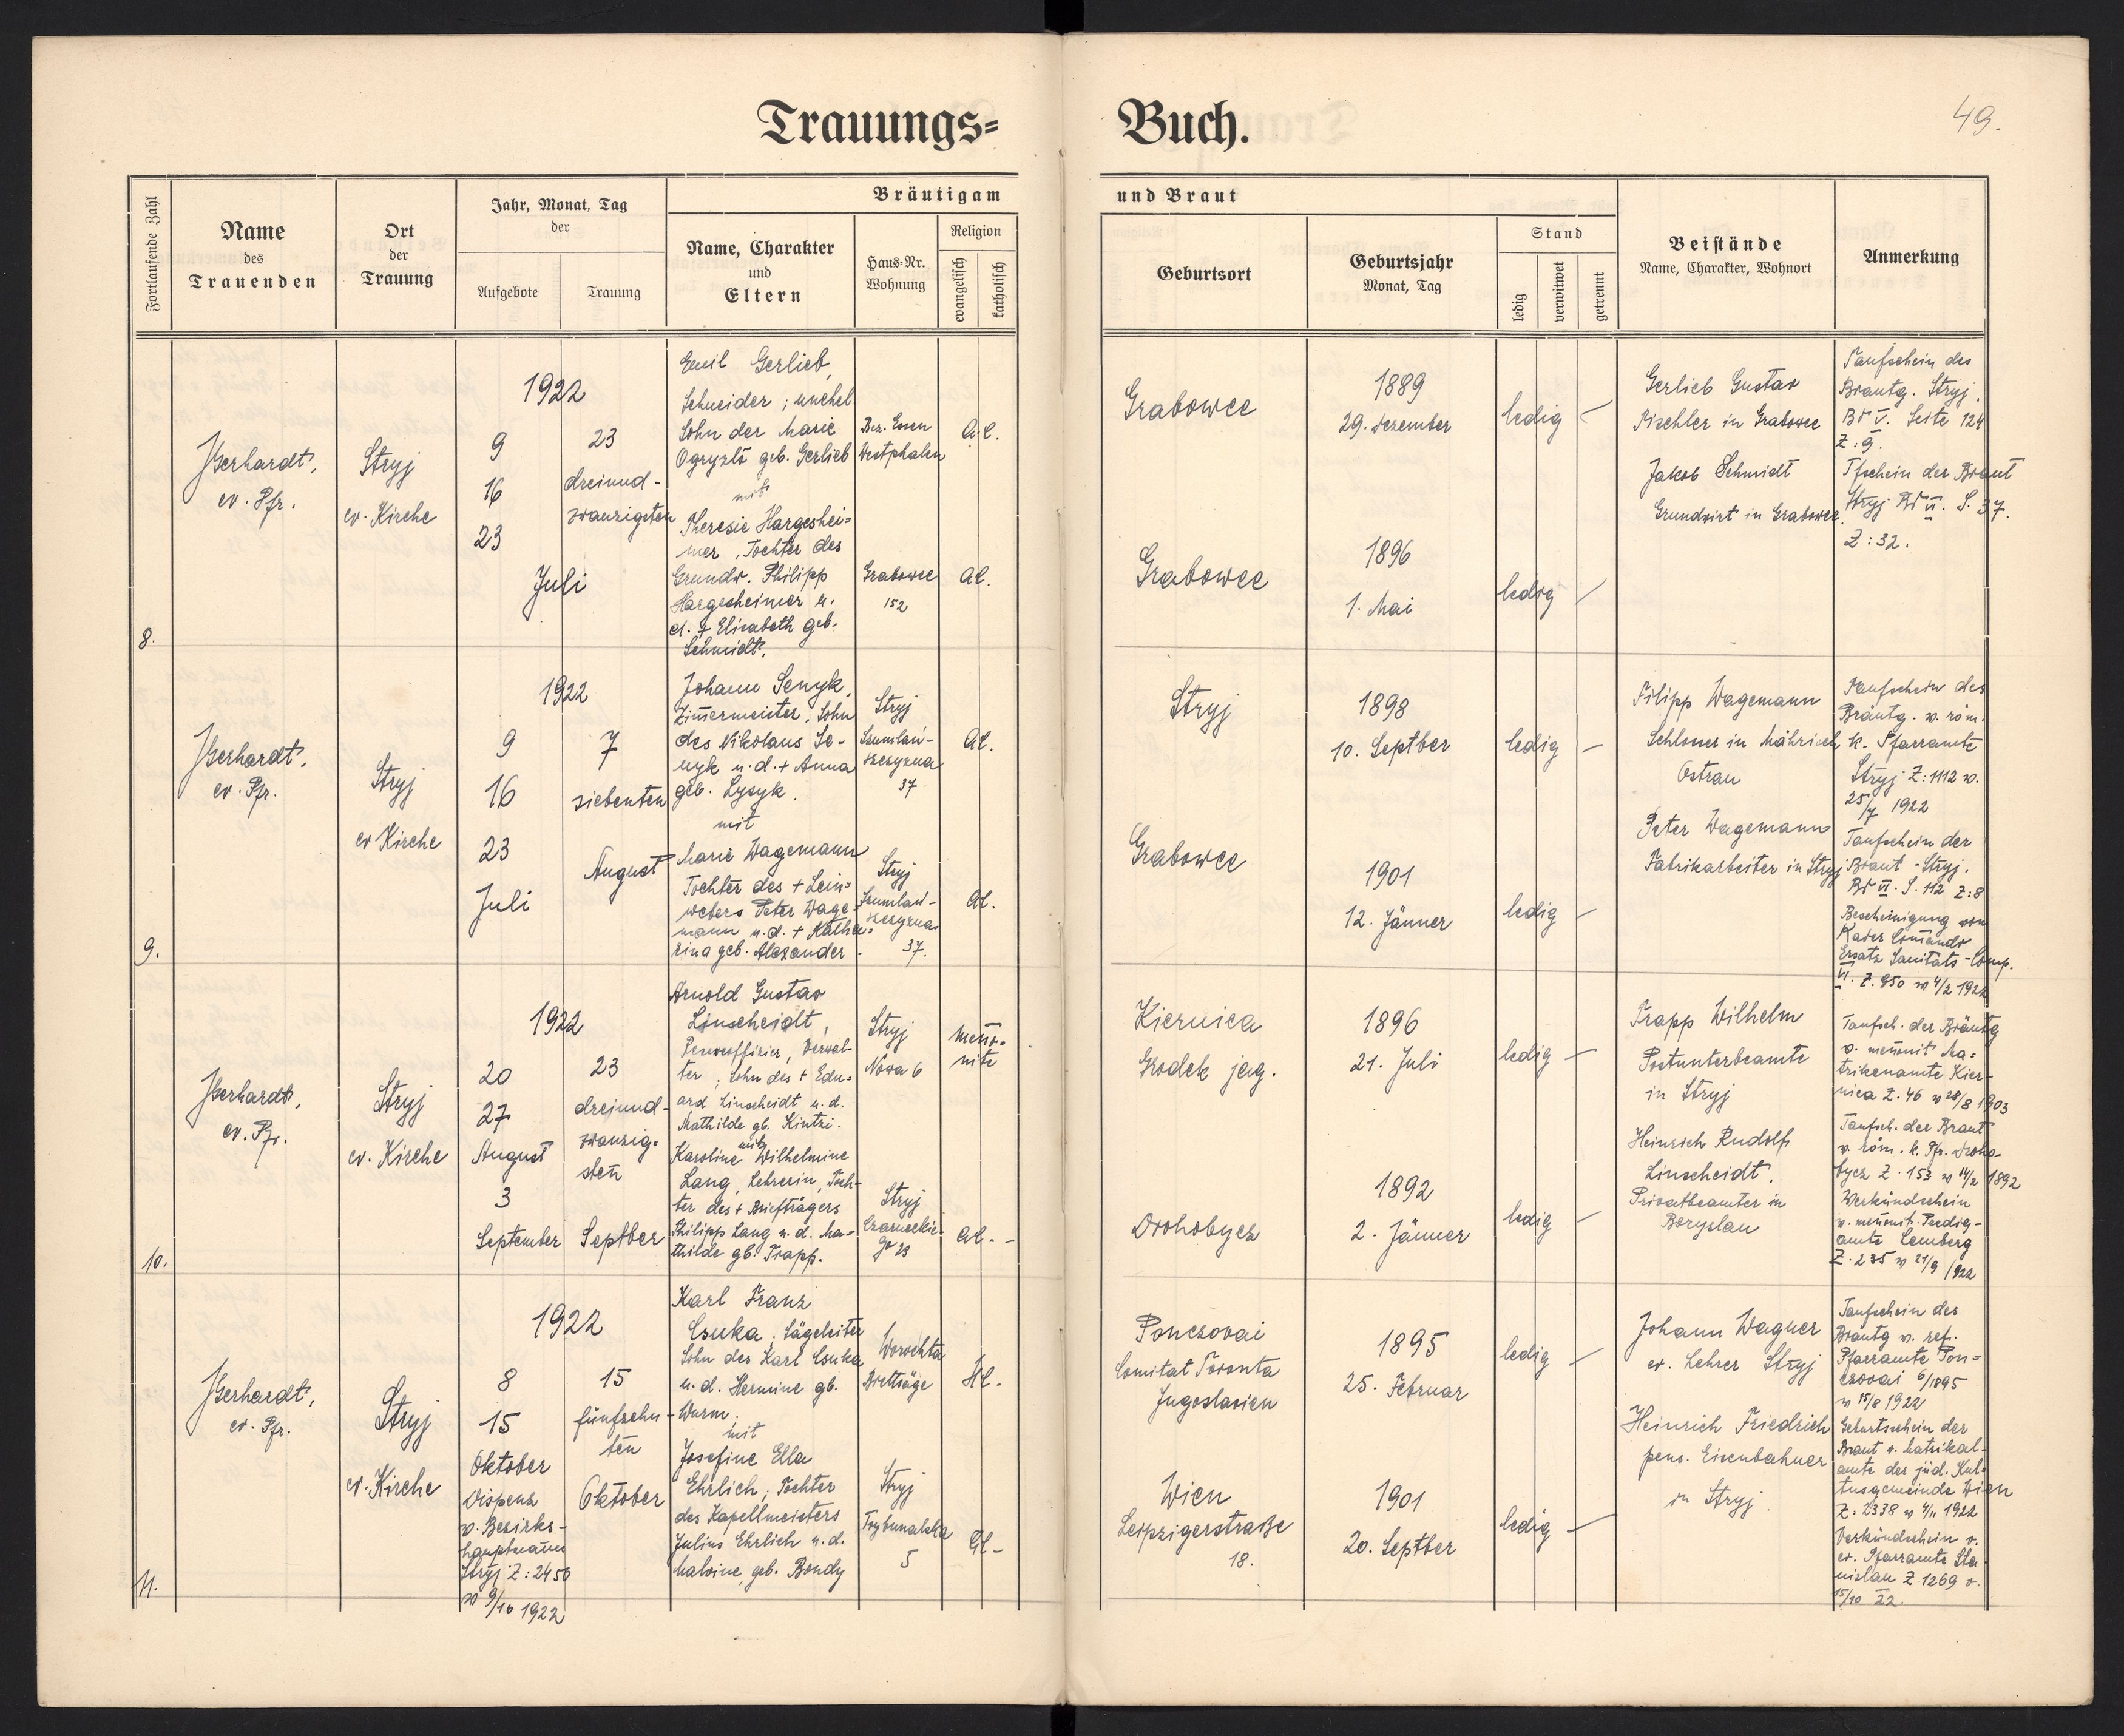 Trauungs=
Buch.
49.
Fortlaufende Zahl
Name
des
Trauenden
Ort
der
Trauung
Jahr, Monat, Tag
der
Aufgebote
Trauung
Bräutigam
Name, Charakter
und
Eltern
Haus-Nr.
Wohnung
Religion
evangelisch
katholisch
und Braut
Geburtsort
Geburtsjahr
Monat, Tag
Stand
ledig
verwitwet
getrennt
Beistände
Name, Charakter, Wohnort
Anmerkung
8.
Gerhardt,
ev. Pfr.
Stryj
ev. Kirche
1922
9
16
23
Juli
23
dreiund-
zwanzigsten
Emil Gerlieb,
Schneider; unehel
Sohn der Marie
geb. Gerlieb
mit
Theresie Hargeshei=
mer, Tochter des
Grundw. Philipp
Hargesheimer u.
d. † Elisabeth geb.
Schmidt.
Bez. Essen
Westphalen
A.C.
Grabowce
152
AC.
Grabowce
1889
29. Dezember
ledig
Grabowce
1896
1. Mai
ledig
Gerlieb Gustav
Tischler in Grabowce
Jakob Schmidt
Grundwirt in Grabowce.
Taufschein des
Brautg. Stryj.
Bd V. Seite 124
Z: 9.
Tfschein der Braut
Stryj Bd VI. S. 37.
Z: 32.
9.
Gerhardt,
ev. Pfr.
Stryj
ev Kirche
1922
9
16
23
Juli
7
siebenten
August
Johann Senyk,
Zimermeister, Sohn
des Nikolaus Se-
nyk u. d. + Anna
geb. Lysyk.
mit
Marie Wagemann
Tochter des + Lein=
webers Peter Wage=
mann u. d. + Katha=
rina geb. Alexander.
Stryj
37
AC.
Stryj
37.
AC.
Stryj
1898
10. Septber
ledig
Grabowce
1901
12. Jänner
ledig
Filipp Wagemann
Schlosser in Mährisch
Ostrau
Peter Wagemann
Fabrikarbeiter in Stryj
Taufschein des
Bräutg. v. röm.
k. Pfarramte
Stryj Z: 1112 v.
25/7 1922
Taufschein der
Braut - Stryj.
Bd VI. S. 112 Z: 8
Bescheinigung vom
Kader Comando
Ersatz Sanitäts-Comp.
VI. Z. 950 v 4/2 1922
10.
Gerhardt,
ev. Pfr.
Stryj
ev. Kirche
1922
20
27
August
3
September
23
dreiund-
zwanzig=
sten
Septber
Arnold Gustav
Linscheidt,
Verwal-
ter; Sohn des + Edu=
ard Linscheidt u. d.
Mathilde gb. Kintzi.
mit
Karoline Wilhelmine
Lang, Lehrerin, Toch-
ter des + Briefträgers
Philipp Lang u. d. Ma=
thilde gb. Trapp.
Stryj
Nowa 6
menno-
nite
Stryj
Czarneckie-
go 23
AC.-
Kiernica
Grodek jag.
1896
21. Juli
ledig
Drohobycz
1892
2. Jänner
ledig
Trapp Wilhelm
Postunterbeamte
in Stryj
Heinrich Rudolf
Linscheidt,
Privatbeamter in
Boryslau
Taufsch. der Bräutg
v. menonit Ma=
trikenamte Kier-
nica Z. 46 v 28/8 1903
Taufsch. der Braut
v. röm. k. Pfr. Droho-
bycz Z. 153 v 14/2 1892
Verkündschein
v. menonit. Predig-
amte Lemberg
Z. 235 v 21/9 1922
11.
Gerhardt,
ev. Pfr.
Stryj
ev. Kirche
1922
8
15
Oktober
Dispens
v. Bezirks-
hauptmann
Stryj Z: 2450
v 9/10 1922
15
fünfzehn-
ten
Oktober
Karl Franz
Csuka, Sägeleiter
Sohn des Karl Csuka
u. d. Hermine gb.
Wurm,
mit
Josefine Ella
Ehrlich; Tochter
des Kapellmeisters
Julius Ehrlich u. d.
Malvine, geb. Bondy
Worochta
Brettsäge
HC.
Stryj
Trybunalska
5
AC-
Ponczovai
Comitat Toronta
Jugoslavien
1895
25. Februar
ledig
Wien
Leipzigerstraße
18.
1901
20. Septber
ledig
Johann Wagner
ev. Lehrer Stryj
Heinrich Friedrich
pens. Eisenbahner
in Stryj.
Taufschein des
Brautg v. ref.
Pfarramte Pon=
czovai 6/1895
v 15/8 1922
Geburtsschein der
Braut v. Matrikal-
amte der jüd. Kul=
tusgemeinde Wien
Z: 2338 v 4/11 1922
Verkündschein v.
ev. Pfarramte Sta-
nislau Z 1269 v.
15/10 22.